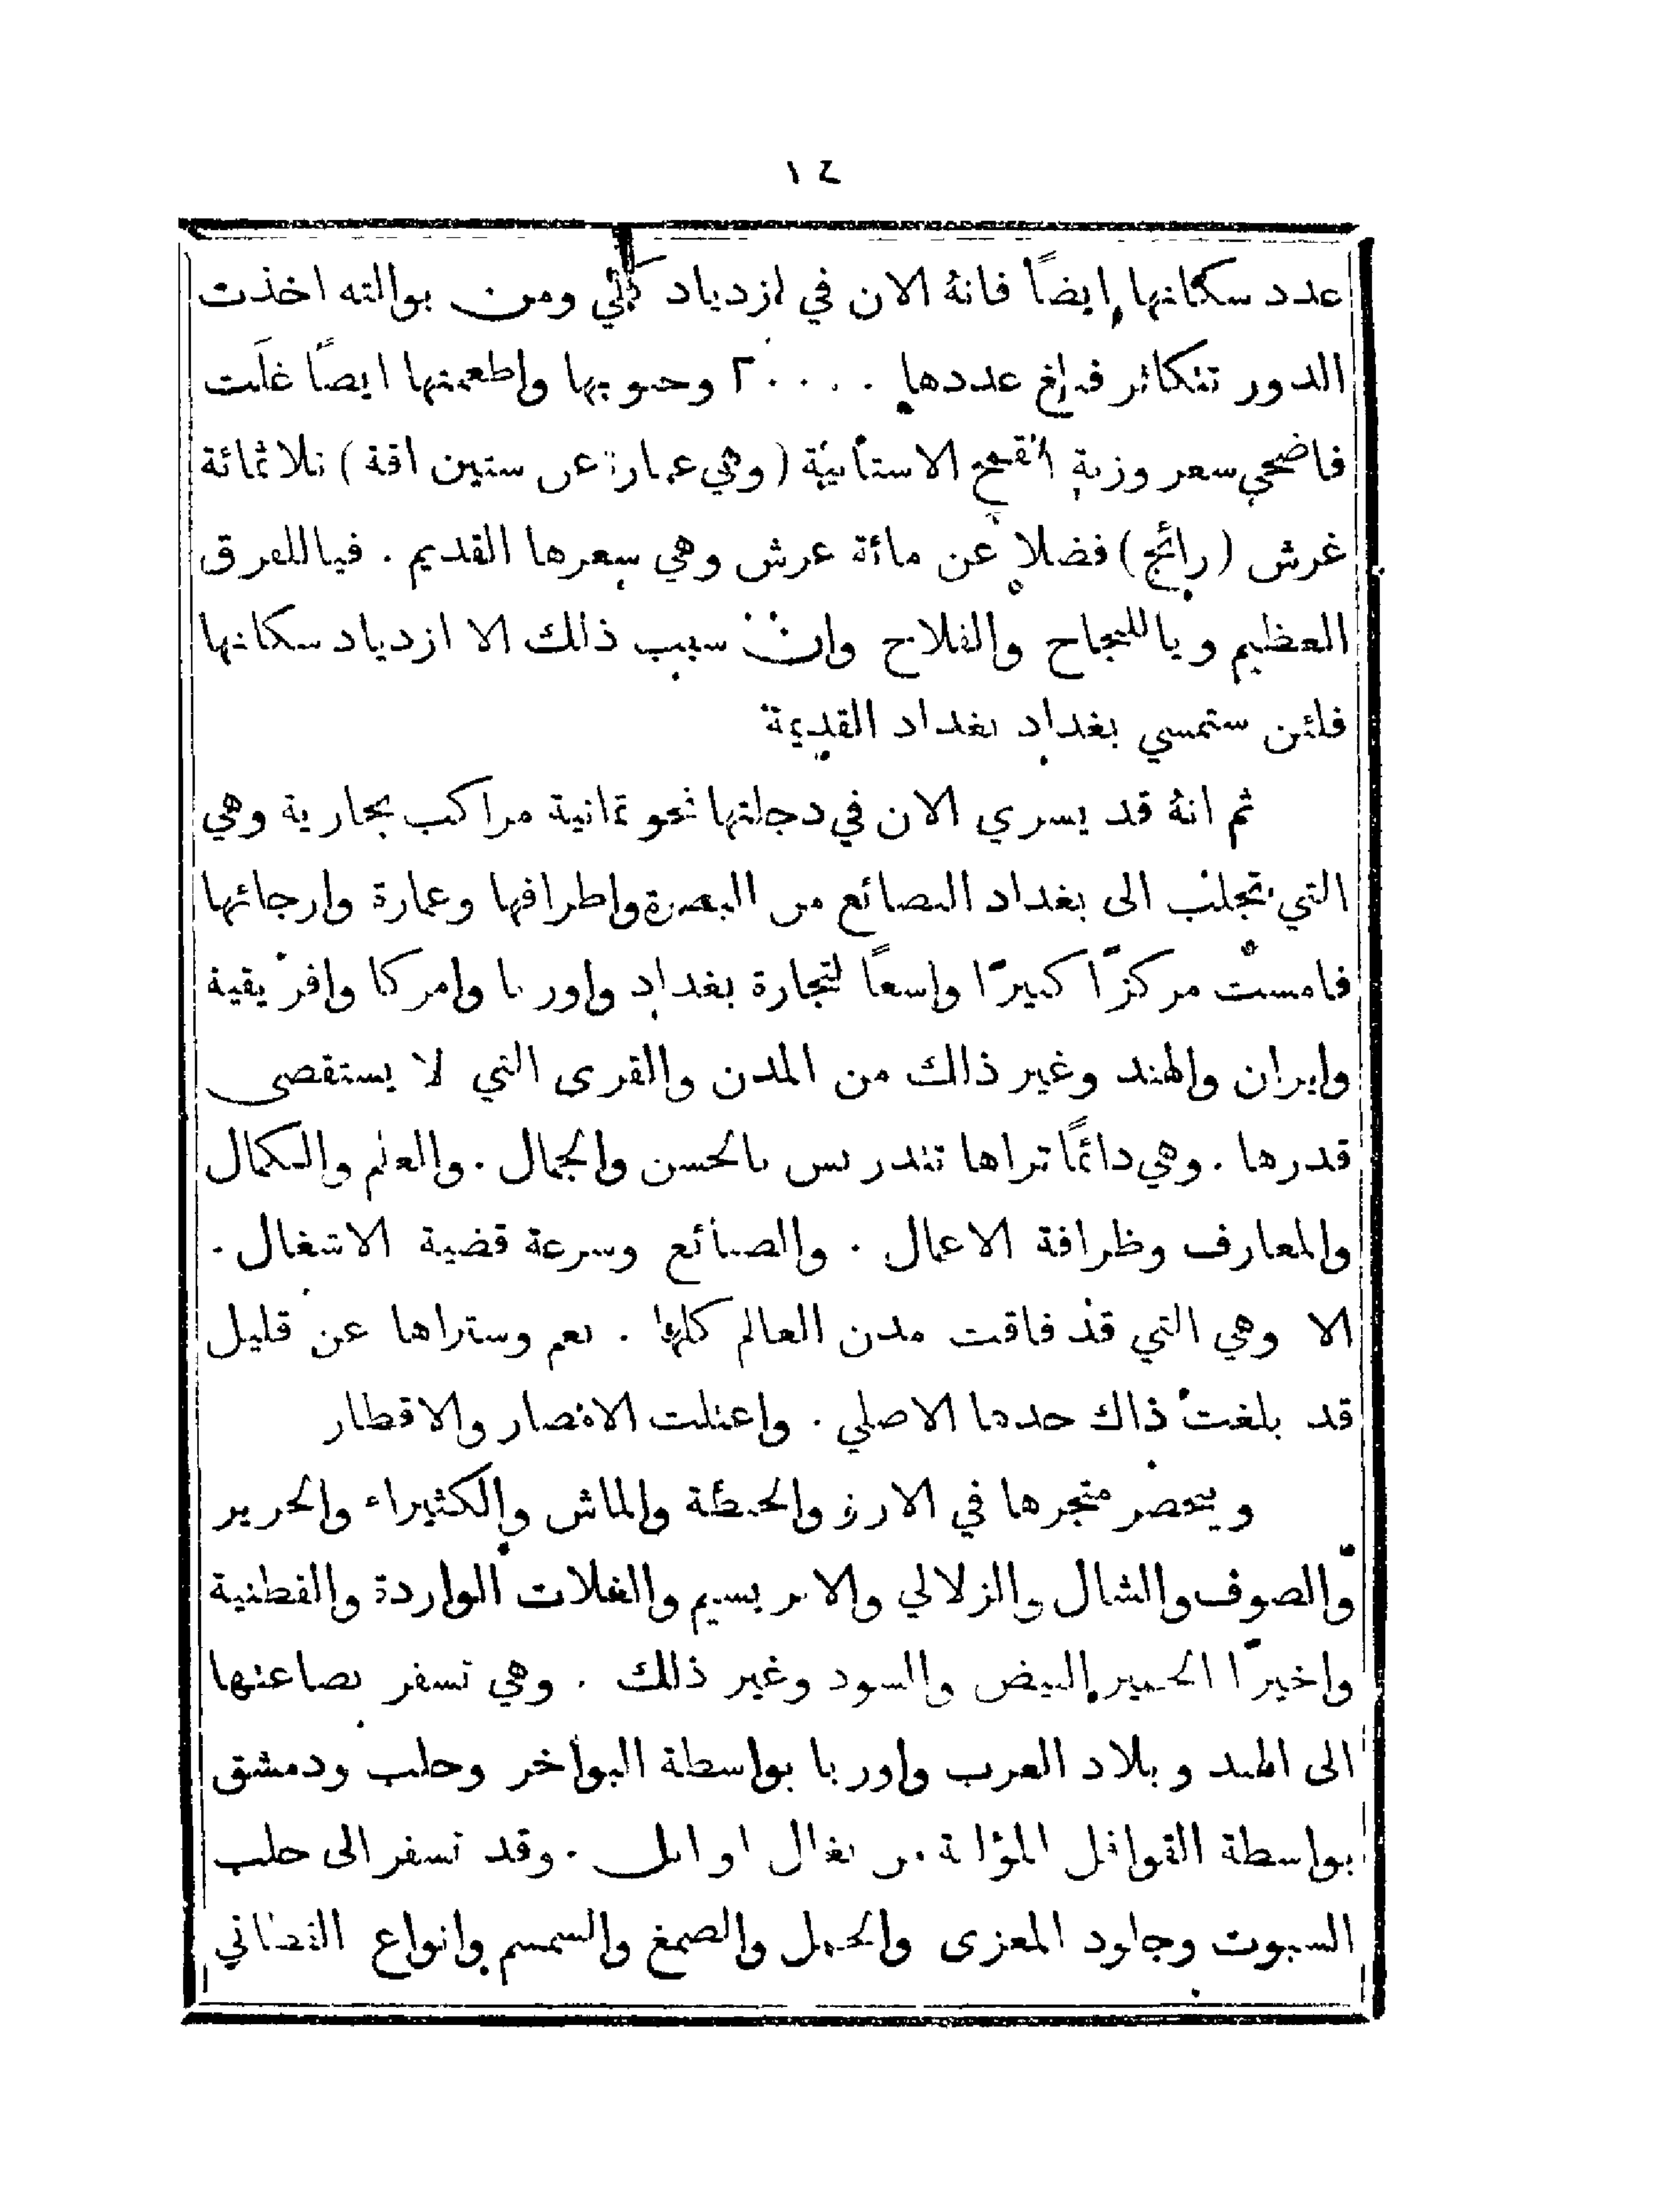 ١٤
عدد سكانها ايضاً فانهُ الان في ازدياد كلي ومن بوالته اخذت
الدور تتكاثر فبلغ عددها ٢٠٠٠٠ وحبوبها واطعمتها ايضاً غلَت
فاضحى سعر وزنة القمح الاستانية (وهي عبارة عن ستين اقة) ثلاثمائة
غرش (رائج) فضلا عن مائة غرش وهي سعرها القديم . فيا للفرق
العظيم ويا للنجاح والفلاح وان سبب ذلك الا ازدياد سكانها
فلئن ستمسي بغداد بغداد القديمة
ثم انهُ قد يسري الان في دجلتها نحو ثمانية مراكب بخارية وهي
التي تجلب الى بغداد البضائع من البصرة واطرافها وعمارة وارجائها
فامست مركزًا كبيرًا واسعًا لتجارة بغداد واوربا وامركا وافريقية
وايران والهند وغير ذلك من المدن والقرى التي لا يستقصى
قدرها . وهي دائمًا تراها تندربس بالحسن والجمال . والعلم والكمال
والمعارف وظرافة الاعمال . والصنائع وسرعة قضية الاشغال .
الا وهي التي قد فاقت مدن العالم كلها . نعم وستراها عن قليل
قد بلغت ذاك حدها الاصلي . واعتلت الامصار والاقطار
وينحصر متجرها في الارز والحنطة والماش والكثيراء والحرير
والصوف والشال والزلالي والابريسيم والغلات الواردة والقطنية
واخيرًا الحمير البيض والسود وغير ذلك . وهي تسفر بضاعتها
الى الهند وبلاد العرب واوربا بواسطة البواخر وحلب ودمشق
بواسطة القوافل المؤلفة من بغال او ابل . وقد تسفر الى حلب
السبوت وجلود المعزى والجمل والصمغ والسمسم وانواع القطاني